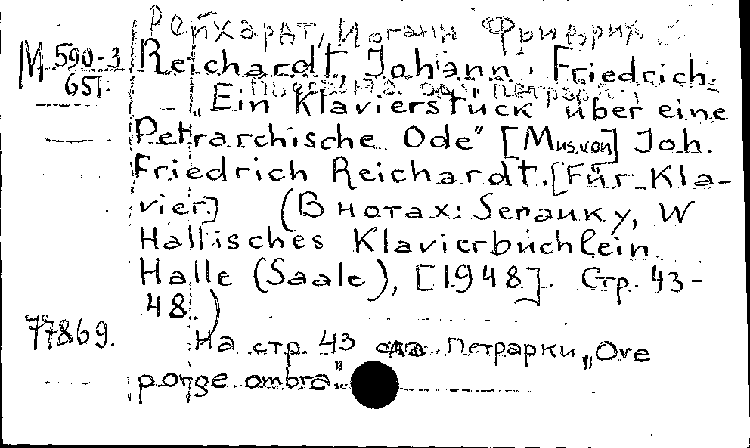 Рейхардт, Иоганн Фридрих
М 590-3 Reichardt, Johann Friedrich.
651
„Ein Klavierstück über eine
Petrarchische Ode" [Mus. von] Joh.
Friedrich Reichardt. [Für Kla-
vier]   (В нотах: W
Hallisches Klavierbüchlein
Halle (Saale), [1948]. Стр. 43-
48.)
77869. На стр. 43 Петрарки „Ove
porge ombra"